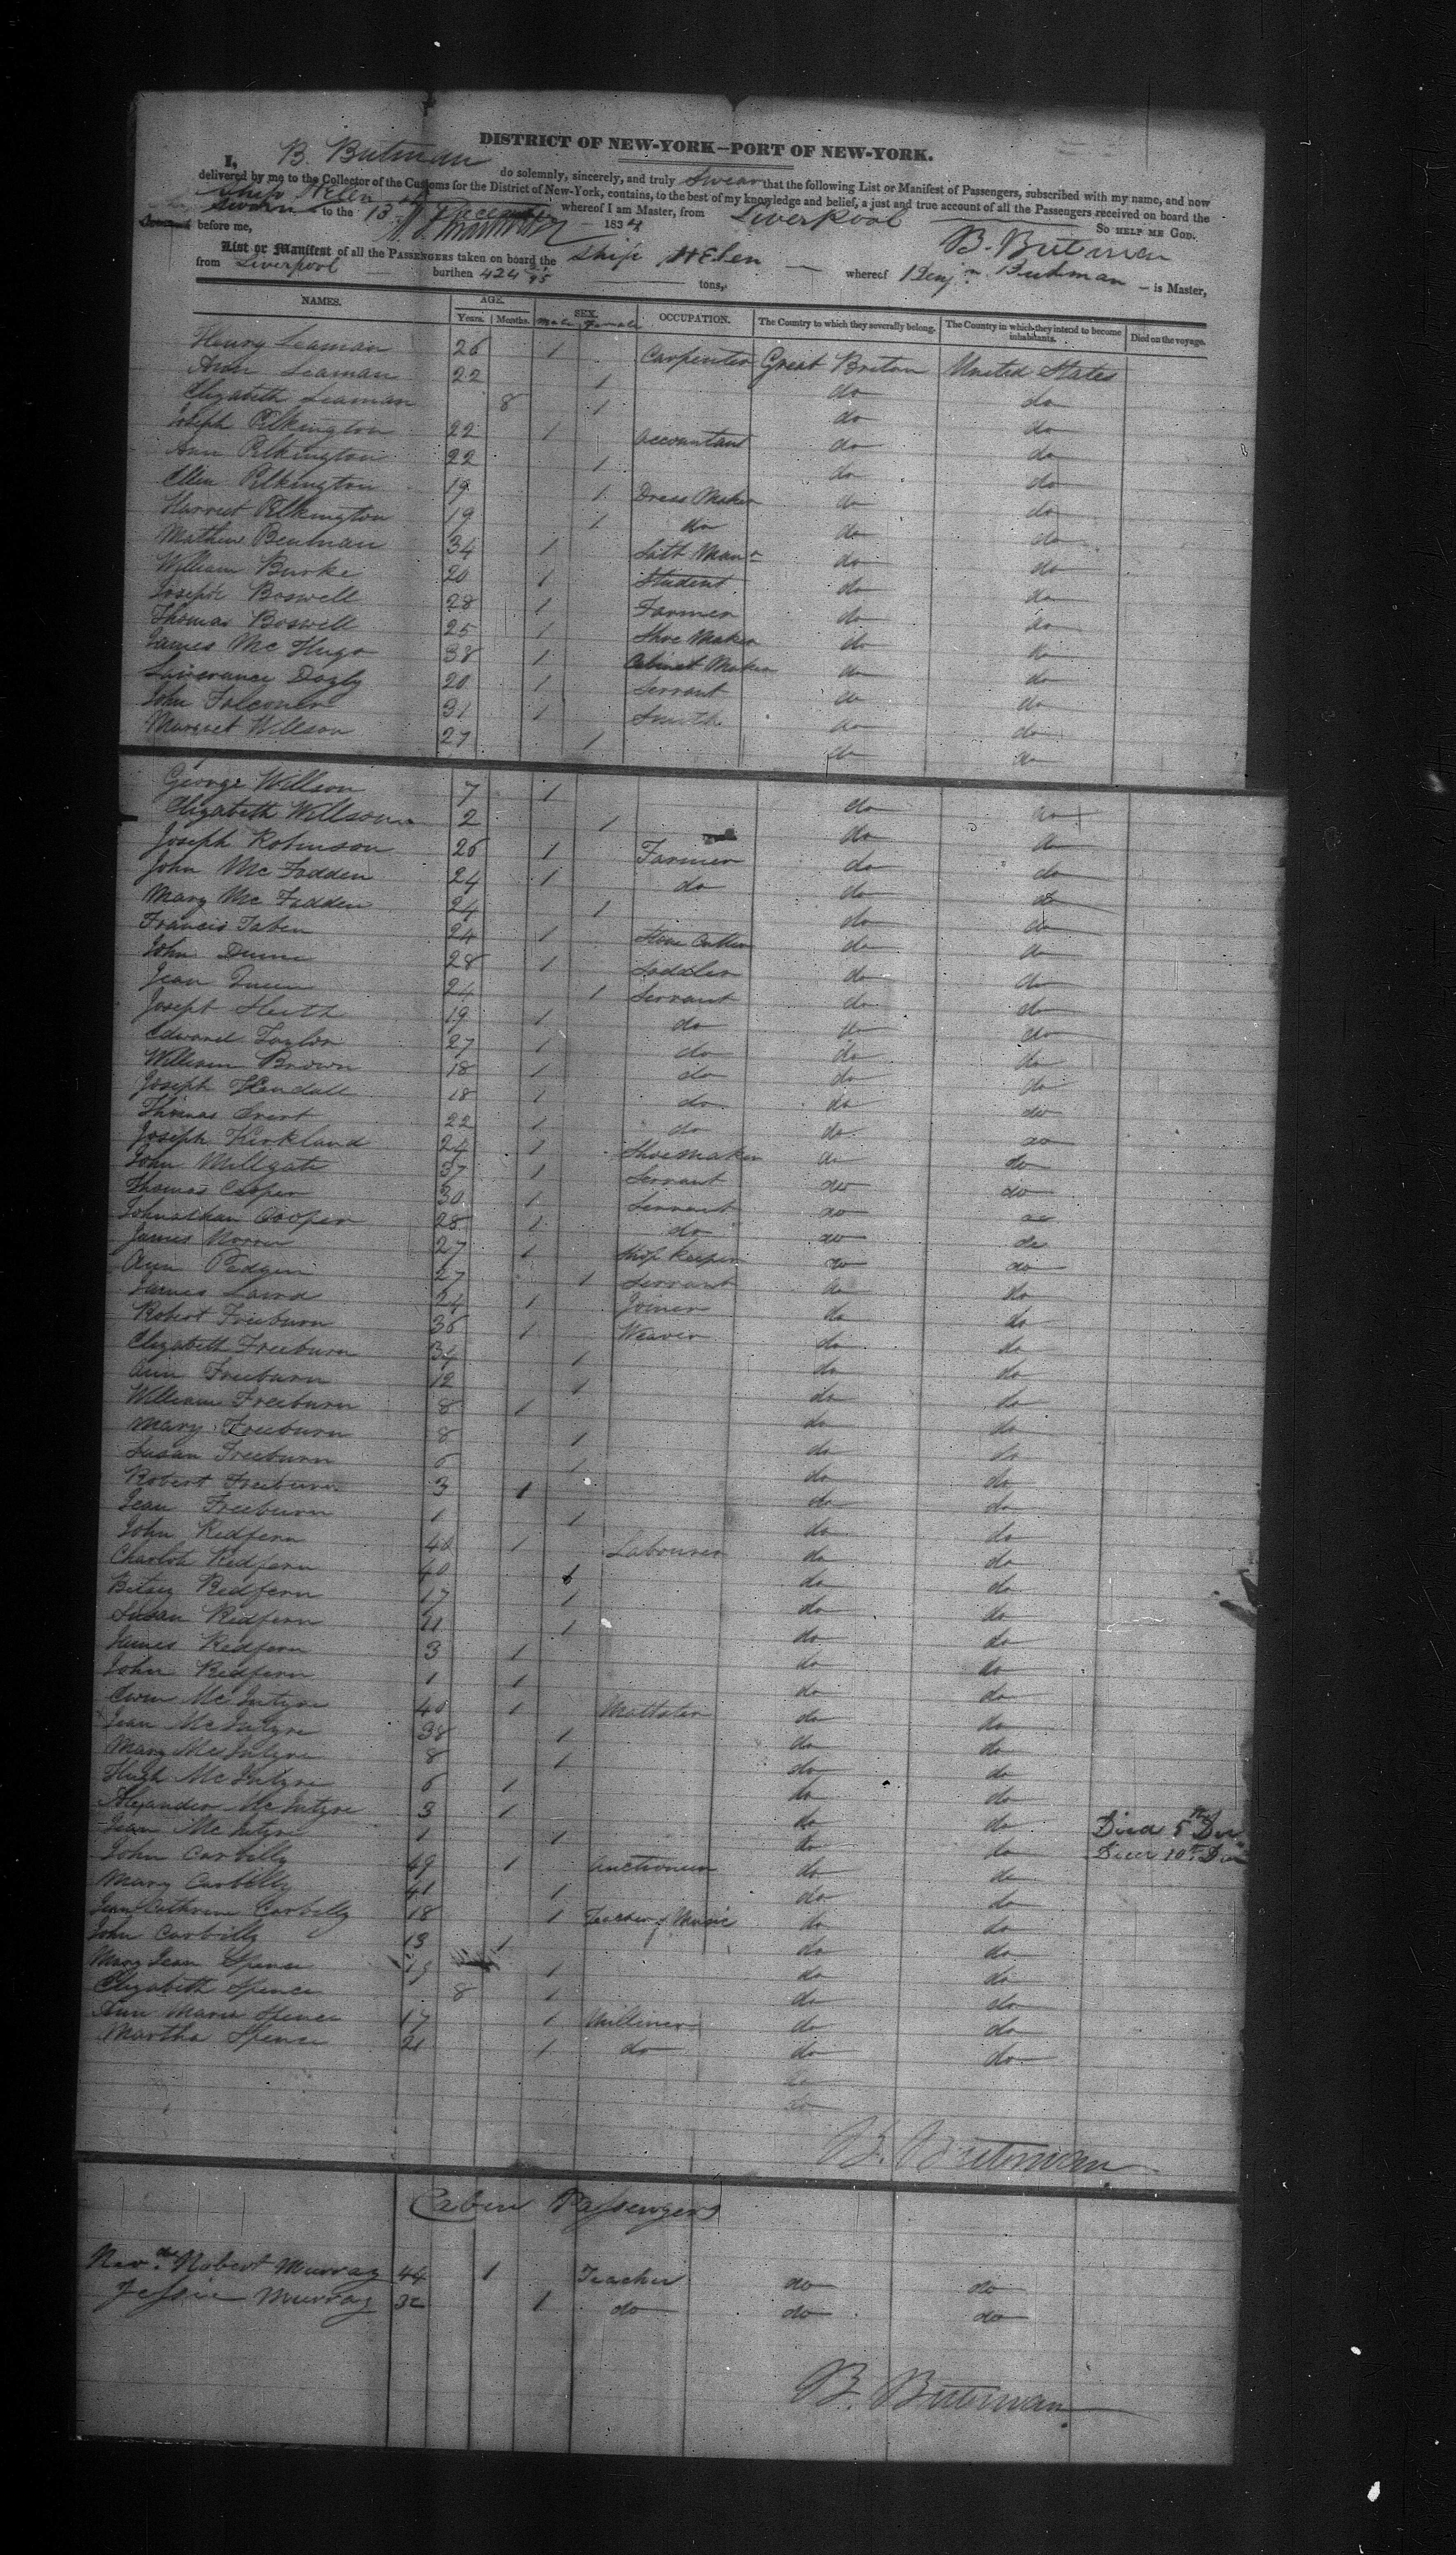 DISTRICT OF NEW-YORK—PORT OF NEW-YORK.
I, B. Butman do solemnly, sincerely, and truly Swear that the following List or Manifest of Passengers, subscribed with my name, and now
delivered by me to the Collector of the Customs for the District of New-York, contains, to the best of my knowledge and belief, a just and true account of all the Passengers received on board the
Ship Helen whereof I am Master, from Liverpool
Sworn to the 13th December 1834 So HELP ME GOD.
before me, B. Butman
List or Manifest of all the PASSENGERS taken on board the Ship Helen whereof Benjn. Butman is Master,
from Liverpool burthen 424 tons,
NAMES. AGE. SEX. OCCUPATION. The Country to which they severally belong. The Country in which they intend to become inhabitants. Died on the voyage.
Years. Months. Male Female
Henry Leaman 26 1 Carpenter Great Breton United States
Ann Leaman 22 1 do do
Elizabeth Leaman 8 1 do do
Joseph Pilkington 22 1 Accountant do do
Ann Pilkington 22 1 do do
Ellen Pilkington 19 1 Dress Maker do do
Harriet Pilkington 19 1 do do do
Mathew Bentman 34 1 do do
William Burke 20 1 Student do do
Joseph Boswell 28 1 Farmer do do
Thomas Boswell 25 1 Shoe Maker do do
James Mc Hugo 38 1 Cabinet Maker do do
Laverance Dogly 20 1 Servant do do
John Falconer 31 1 Smith do do
Margret Willson 27 1 do do
George Willson 7 1 do do
Elizabeth Willson 2 1 do do
Joseph Robinson 26 1 Farmer do do
John Mc Fadden 24 1 do do do
Mary Mc Fadden 24 1 do do
Francis Taben 24 1 Stone Cutter do do
John Dunn 28 1 Saddler do do
Jean Queen 24 1 Servant do do
Joseph Heith 19 1 do do do
Edward Taylor 27 1 do do do
William Brown 18 1 do do do
Joseph Kendall 18 1 do do do
Thomas Evert 22 1 do do do
Joseph Kirkland 24 1 Shoemaker do do
John Millgate 37 1 Servant do do
Thomas Cooper 30 1 Servant do do
Johnathan Cooper 28 1 do do do
James Morren 27 1 Shop Keeper do do
Ann Pedgen 27 1 Servant do do
James Laird 24 1 Joiner do do
Robert Freeburn 36 1 Weaver do do
Elizabeth Freeburn 34 1 do do
Ann Freeburn 12 1 do do
William Freeburn 8 1 do do
Mary Freeburn 8 1 do do
Susan Freeburn 6 1 do do
Robert Freeburn 3 1 do do
Jean Freeburn 1 1 do do
John Redfern 40 1 Labourer do do
Charlote Redfern 40 1 do do
Betsey Redfern 17 1 do do
Susan Redfern 11 1 do do
James Redfern 3 1 do do
John Redfern 1 1 do do
Owen Mc Intyre 40 1 do do
Jean Mc Intyre 38 1 do do
Mary Mc Intyre 8 1 do do
Hugh Mc Intyre 6 1 do do
Alexander Mc Intyre 3 1 do do Died 5th Dec
Jean Mc Intyre 1 1 do do Died 10th Dec
John Carbelly 49 1 Auctioneer do do
Mary Carbelly 41 1 do do
Jean Cathrine Carbelly 18 1 Teacher of Music do do
John Carbelly 13 1 do do
Mary Jean Spence 19 1 do do
Elizabeth Spence 8 1 do do
Ann Maria Spence 17 1 Milliner do do
Martha Spence 21 1 do do do
do
do
B. Buterman
Cabin Passengers
Revd. Robert Murray 44 1 Teacher do do
Jessie Murray 32 1 do do do
B. Buterman